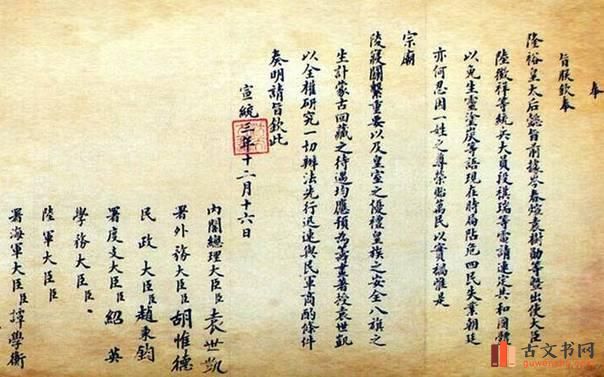 奉
旨朕欽奉
隆裕皇太后懿旨前據岑春煊袁樹勛等暨出使大臣
陸徵祥等統兵大員段祺瑞等電請速定共和國體
以免生靈塗炭等語現在時局阽危四民失業朝廷
亦何忍因一姓之尊榮貽萬民以實禍惟是
宗廟
陵寢關繫重要以及皇室之優禮皇族之安全八旗之
生計蒙古回藏之待遇均應預為籌畫著授袁世凱
以全權研究一切辦法先行迅速與民軍商酌條件
奏明請旨欽此
宣統三年十二月十六日
內閣總理大臣臣袁世凱
署外務大臣臣胡惟德
民政大臣臣趙秉鈞
署度支大臣臣紹英
學務大臣臣
陸軍大臣臣
署海軍大臣臣譚學衡
古文书网